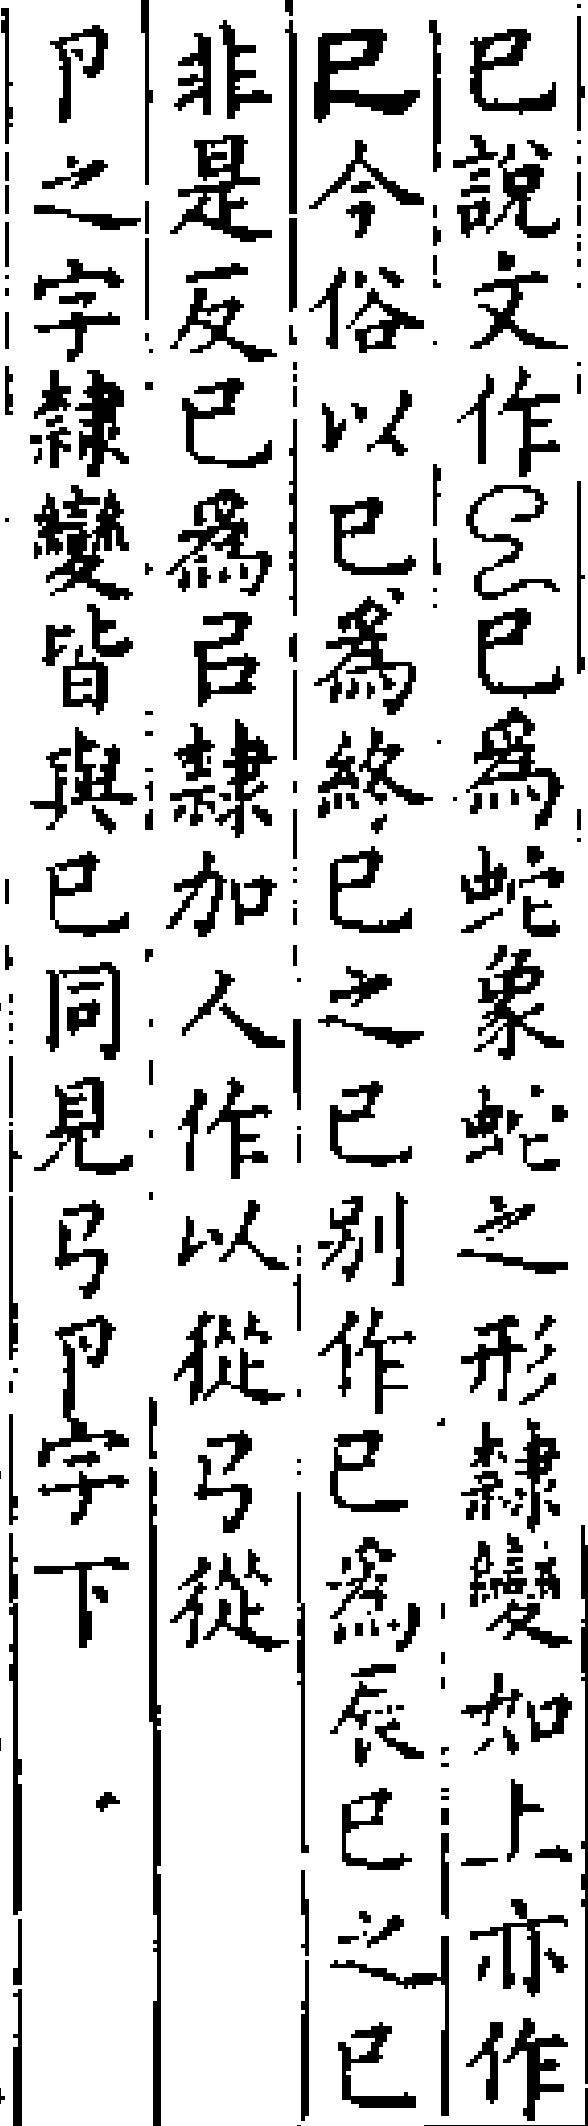 巳說文作𢀒巳爲蛇象蛇之形隸變如上亦作
㔾今俗以巳爲終巳之巳別作巳爲辰巳之巳
非是反巳爲㠯隸加人作以從㔾從
卩之字隸變皆與巳同見㔾卩字下